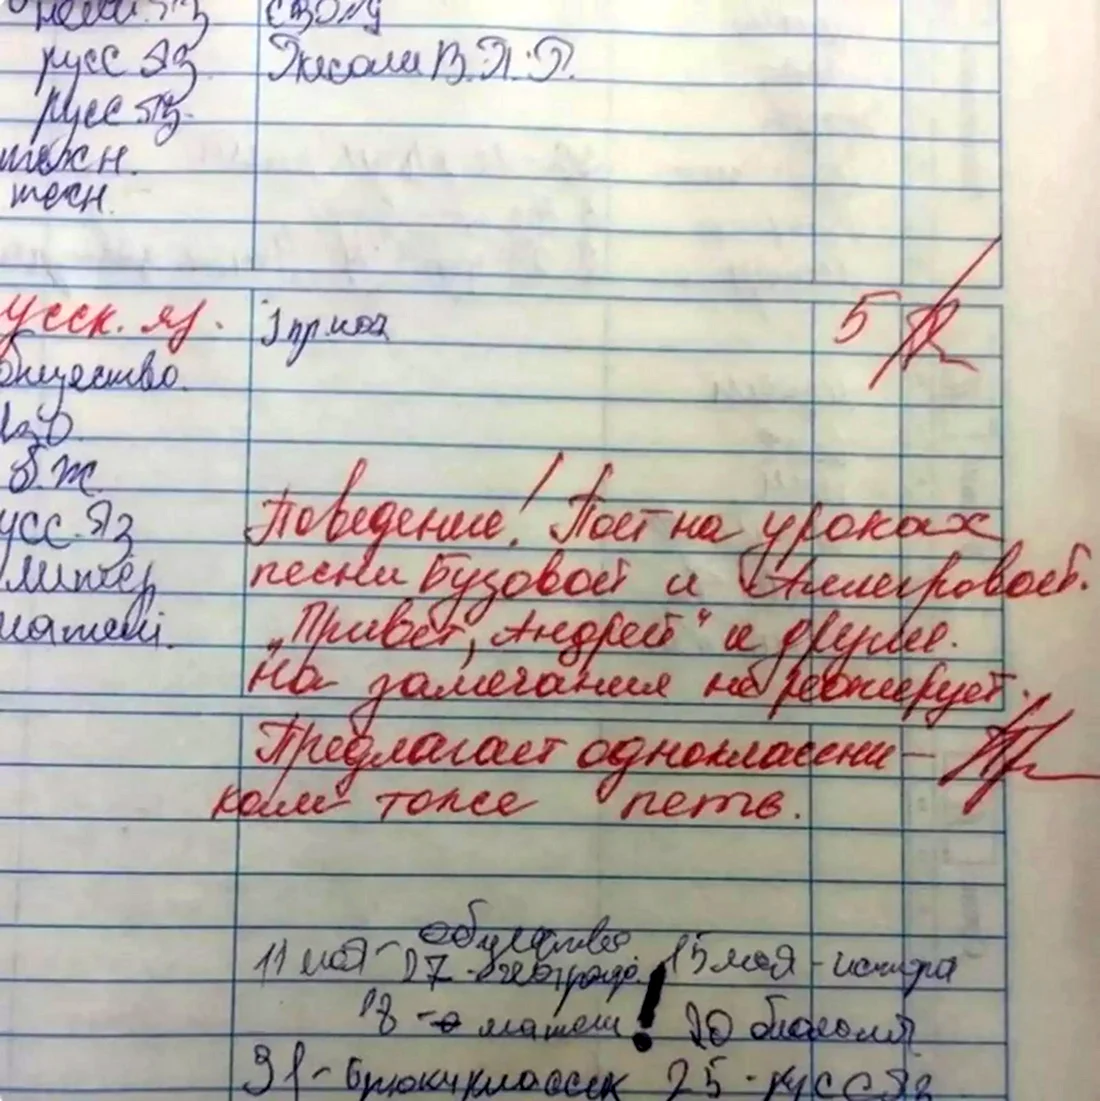 русс яз
русс яз.
техн.
техн.
усск. яз. 5
бщество.
усс. яз
литер
Поведение! Поет на уроках
песни Бузовой и Аллегровой.
„Привет, Андрей" и другие.
На замечания не реагирует.
Предлагает одноклассни-
кам тоже петь.
общество
11 мая- 15 мая - истора
18 - матем! 20 биология
31- 25 - русс яз